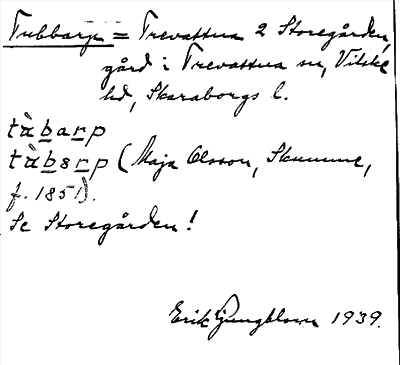 Tubbarp = Trevattna 2 Storegården,
gård i Trevattna sn, Vilske
hd, Skaraborgs l.
tàbarp
tàbsrp (Maja Olsson, Skumme,
f. 1851).
Se Storegården!
Erik Ljungblom 1939.